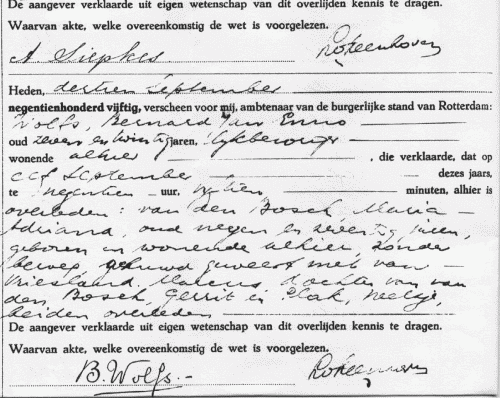 De aangever verklaarde uit eigen wetenschap van dit overlijden kennis te dragen.
Waarvan akte, welke overeenkomstig de wet is voorgelezen.
A. Siepkes
Heden, dertien September
negentienhonderd vijftig, verscheen voor mij, ambtenaar van de burgerlijke stand van Rotterdam:
Wolfs, Bernard Jan Enno
oud zeven en twintig jaren, lijkbezorger
wonende alhier, die verklaarde, dat op
elf September dezes jaars,
te negentien uur, minuten, alhier is
overleden: van den Bosch, Maria
Adriana, oud negen en zeventig jaren,
geboren en wonende alhier zonder
beroep, gehuwd geweest met van
Vriesland, Marcus, dochter van van
den Bosch, Gerrit en Plak, Neeltje,
beiden overleden
De aangever verklaarde uit eigen wetenschap van dit overlijden kennis te dragen.
Waarvan akte, welke overeenkomstig de wet is voorgelezen.
B. Wolfs.-